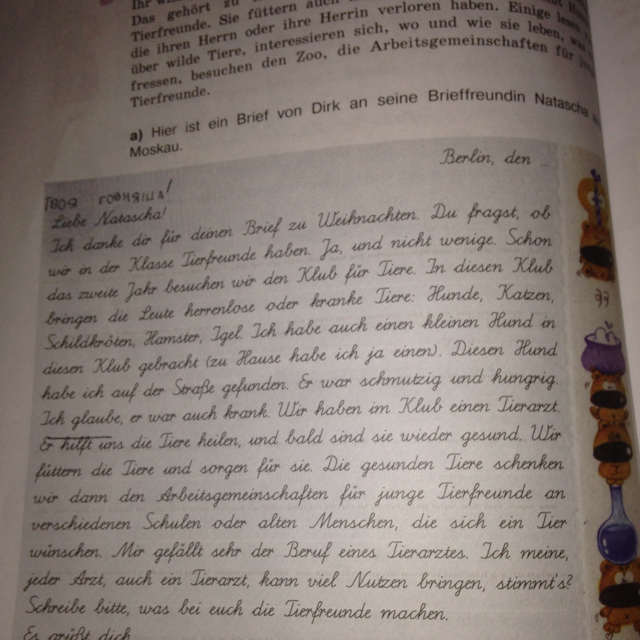 Das gehört zu
Tierfreunde. Sie füttern auch
die ihren Herrn oder ihre Herrin verloren haben. Einige lesen
über wilde Tiere, interessieren sich, wo und wie sie leben, was
fressen, besuchen den Zoo, die Arbeitsgemeinschaften für
Tierfreunde.
a) Hier ist ein Brief von Dirk an seine Brieffreundin Natascha
Moskau.
Berlin, den
Liebe Natascha!
Ich danke dir für deinen Brief zu Weihnachten. Du fragst, ob
wir in der Klasse Tierfreunde haben. Ja, und nicht wenige. Schon
das zweite Jahr besuchen wir den Klub für Tiere. In diesen Klub
bringen die Leute herrenlose oder kranke Tiere: Hunde, Katzen,
Schildkröten, Hamster, Igel. Ich habe auch einen kleinen Hund in
diesen Klub gebracht (zu Hause habe ich ja einen). Diesen Hund
habe ich auf der Straße gefunden. Er war schmutzig und hungrig.
Ich glaube, er war auch krank. Wir haben im Klub einen Tierarzt.
Er hilft uns die Tiere heilen, und bald sind sie wieder gesund. Wir
füttern die Tiere und sorgen für sie. Die gesunden Tiere schenken
wir dann den Arbeitsgemeinschaften für junge Tierfreunde an
verschiedenen Schulen oder alten Menschen, die sich ein Tier
wünschen. Mir gefällt sehr der Beruf eines Tierarztes. Ich meine,
jeder Arzt, auch ein Tierarzt, kann viel Nutzen bringen, stimmt's?
Schreibe bitte, was bei euch die Tierfreunde machen.
Es grüßt dich